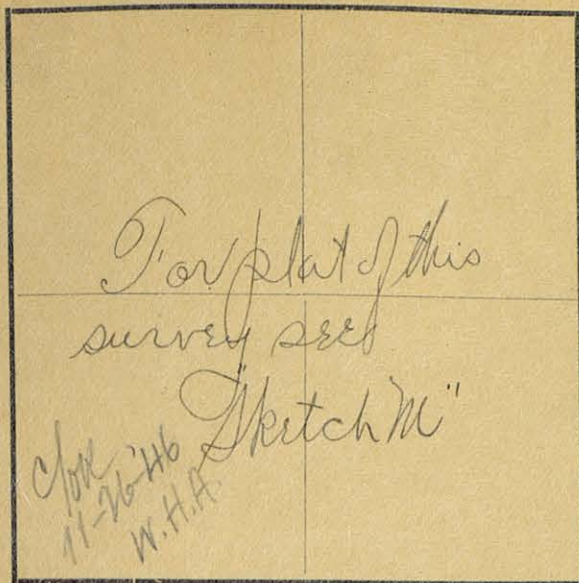 For plat of this
survey see
"Sketch M"
11-26-'46
W.H.A.